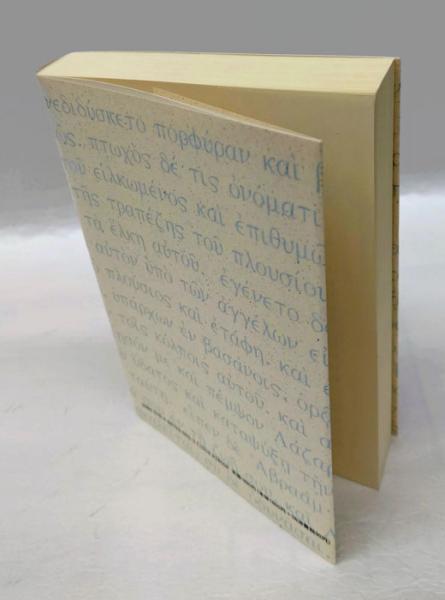 νεδιδύσκετο πορφύραν καὶ β
ός. πτωχὸς δέ τις ὀνόματι
τοῦ εἱλκωμένος καὶ ἐπιθυμῶ
τῆς τραπέζης τοῦ πλουσίου
τὰ ἕλκη αὐτοῦ. ἐγένετο δὲ
αὐτὸν ὑπὸ τῶν ἀγγέλων εἰ
πλούσιος καὶ ἐτάφη. καὶ ἐ
ὑπάρχων ἐν βασάνοις, ὁρᾷ
τοῖς κόλποις αὐτοῦ. καὶ α
με καὶ πέμψον Λάζαρ
ὕδατος καὶ καταψύξῃ τὴν
εἶπεν δὲ Ἀβραάμ,
καὶ